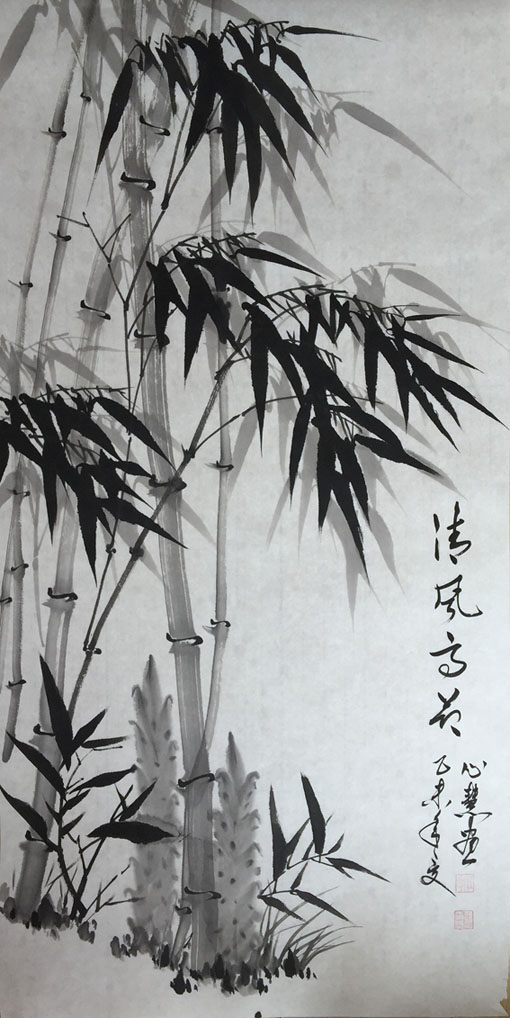 清風高节
心慧画
乙未年夏